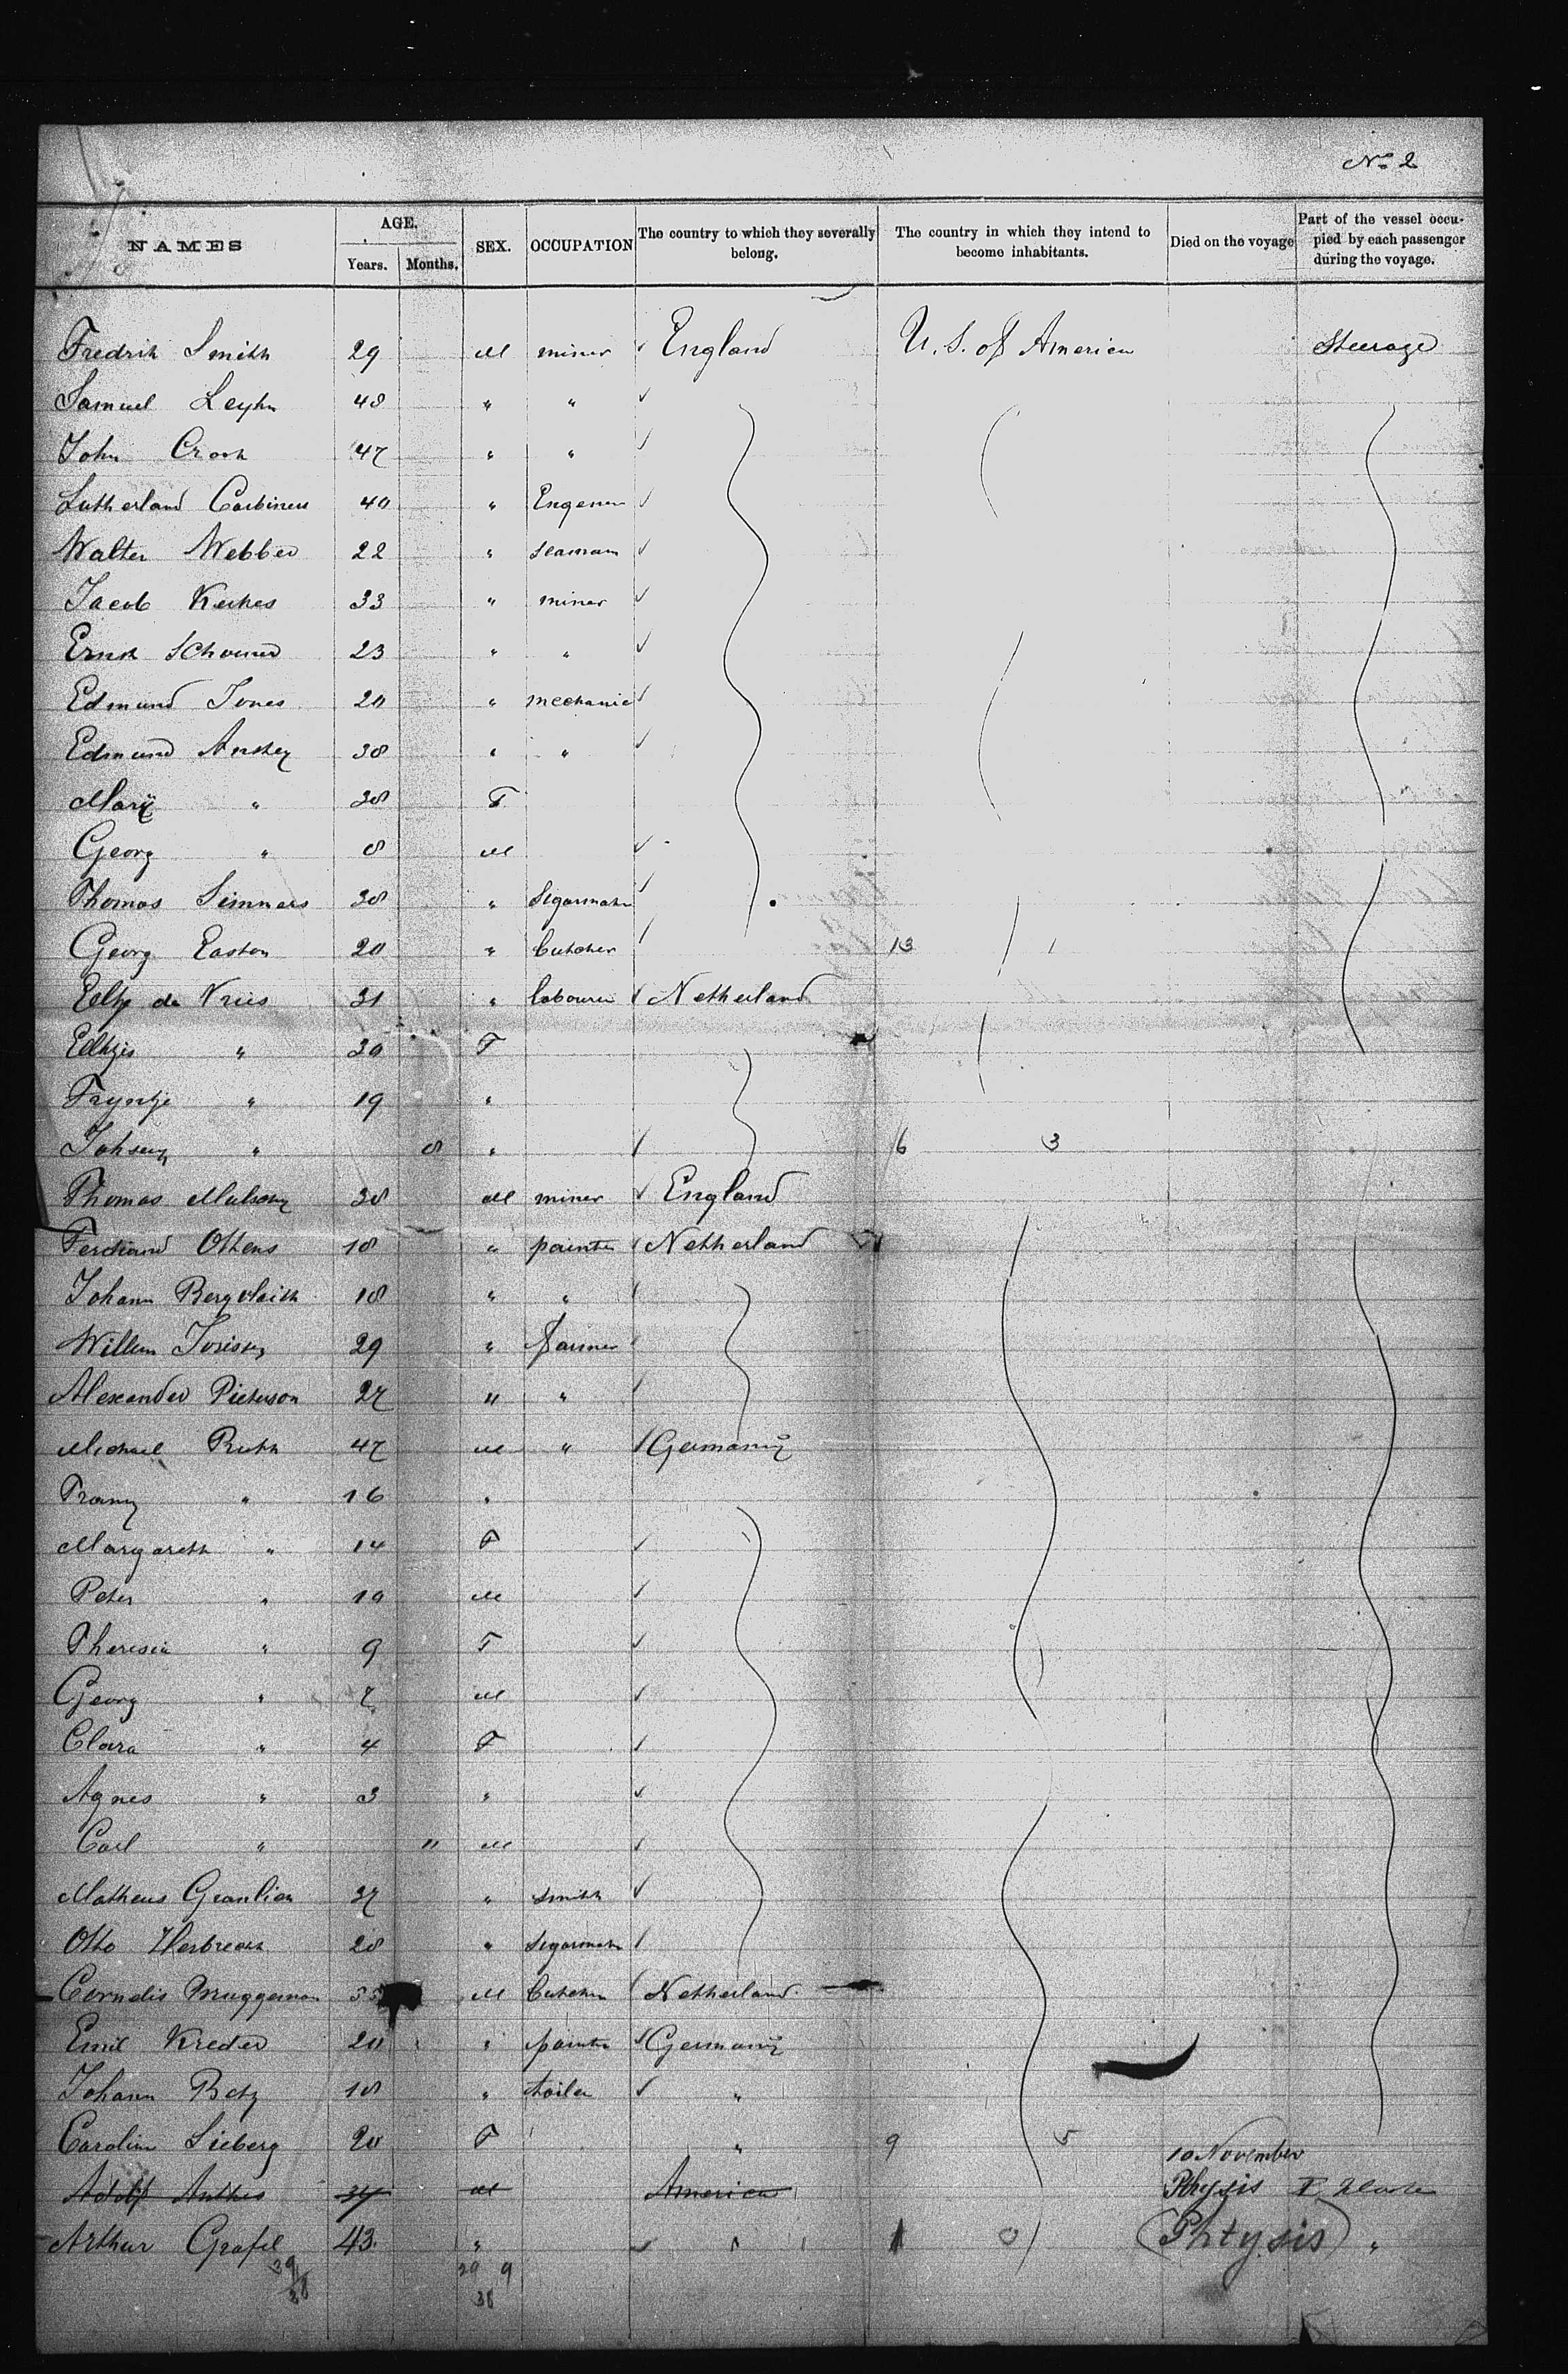 No 2
NAMES AGE. Years. Months. SEX. OCCUPATION The country to which they severally belong. The country in which they intend to become inhabitants. Died on the voyage Part of the vessel occupied by each passenger during the voyage.
Fredrik Smith 29 M miner England U. S. of America Steerage
Samuel 48 " "
John Crook 47 " "
40 "
Walter Webber 22 " seaman
Jacob 33 " miner
Ernst 23 " "
Edmund Jones 20 " mechanic
Edmund 38 " "
Mary " 38 F
Georg " 8 M
Thomas Simmers 38 "
Georg Easton 20 " butcher 13 1
de Vries 31 " labourer Netherland
" 30 F
Tryntje " 19 "
" 8 " 6 3
Thomas 38 M miner England
Ferdinand Ottens 18 " painter Netherland
Johann 18 " "
Willem 29 " farmer
Alexander Pieterson 27 " "
Michael 47 M " Germany
Franz " 16 "
Margareth " 14 F
Peter " 10 M
Theresia " 9 F
Georg " 7 M
Clara " 4 F
Agnes " 3 "
Carl " 11 M
Matheus 37 " smith
Otto 28 "
Cornelis Bruggeman 55 M butcher Netherland
Emil Kreder 20 " painter Germany
Johann Betz 18 " "
Carolin Sieberg 20 F " 9 5
10 November
Adolf Anthes 34 M America Phtysis
Arthur Grafel 43 " " 1 0 (Phtysis) "
39 29 9
38 38